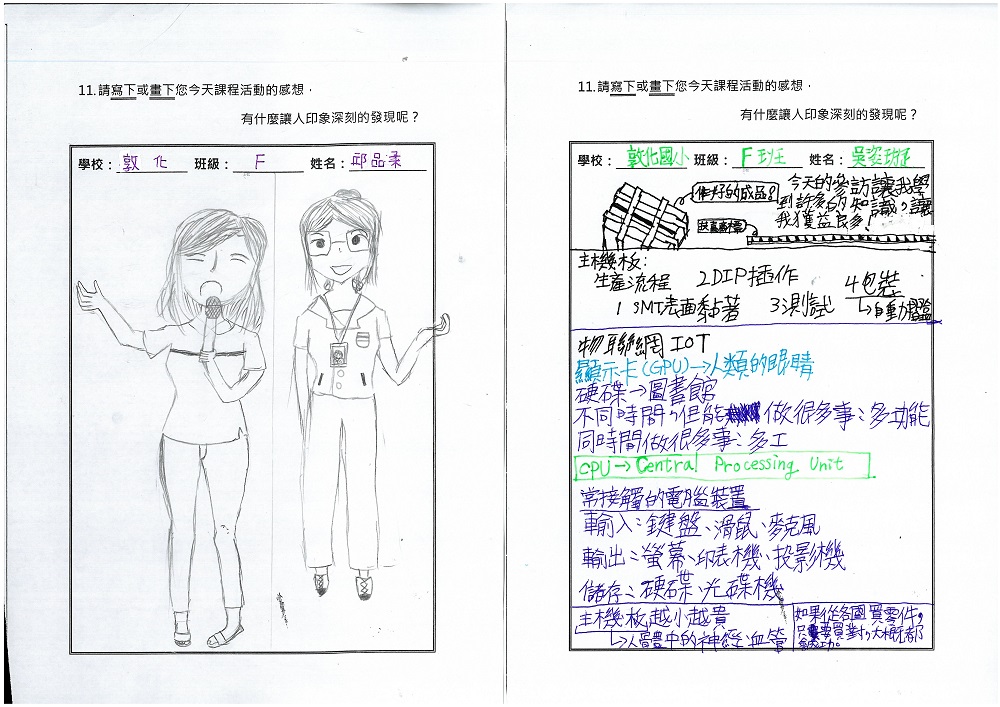 11.請寫下或畫下您今天課程活動的感想，
有什麼讓人印象深刻的發現呢？
學校：敦化 班級：F 姓名：邱品柔
11.請寫下或畫下您今天課程活動的感想，
有什麼讓人印象深刻的發現呢？
學校：敦化國小 班級：F班 姓名：吳姿
作好的成品？
今天的參訪讓我學
到許多的知識，讓
我獲益良多.
主機板：
生產流程 2DIP插作 4包裝
1 SMT表面黏著 3測試 ↳自動
物聯網IOT
顯示卡(GPU)→人類的眼睛
硬碟→圖書館
不同時間，但能做很多事：多功能
同時間做很多事：多工
CPU→Central Processing Unit
常接觸的電腦裝置
輸入：鍵盤、滑鼠、麥克風
輸出：螢幕、印表機、投影機
儲存：硬碟、光碟機
主機板越小越貴
↳人體中的神經血管
如果從各國買零件，
只要買對，大概都
成功。